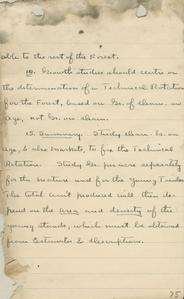 able to the rest of the Forest.
12. Growth studies should centre on
the determination of a Technical Rotation
for the Forest, based on Gr. of diam. on
age, not Gr. on diam.
13. Summary. Study diam. Gr. on
age, & also Markets, to fix the Technical
Rotation. Study Gr. per acre separately
for the mature and for the young Timber.
The total am't produced will then de-
pend on the area and density of the
young stands, which must be obtained
from Estimates & descriptions.
25